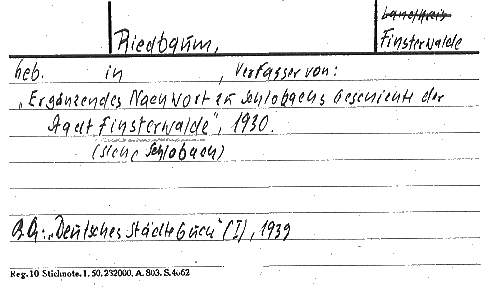 Landkreis
Riedbaum,
Finsterwalde
geb. in , Verfasser von:
„Ergänzendes Nachwort zu Schlobachs Geschichte der
Stadt Finsterwalde", 1930.
(siehe Schlobach)
„Deutsches Städtebuch" (I), 1939
Reg. 10 Stichnote. I. 50. 232000. A. 803. S. 4062